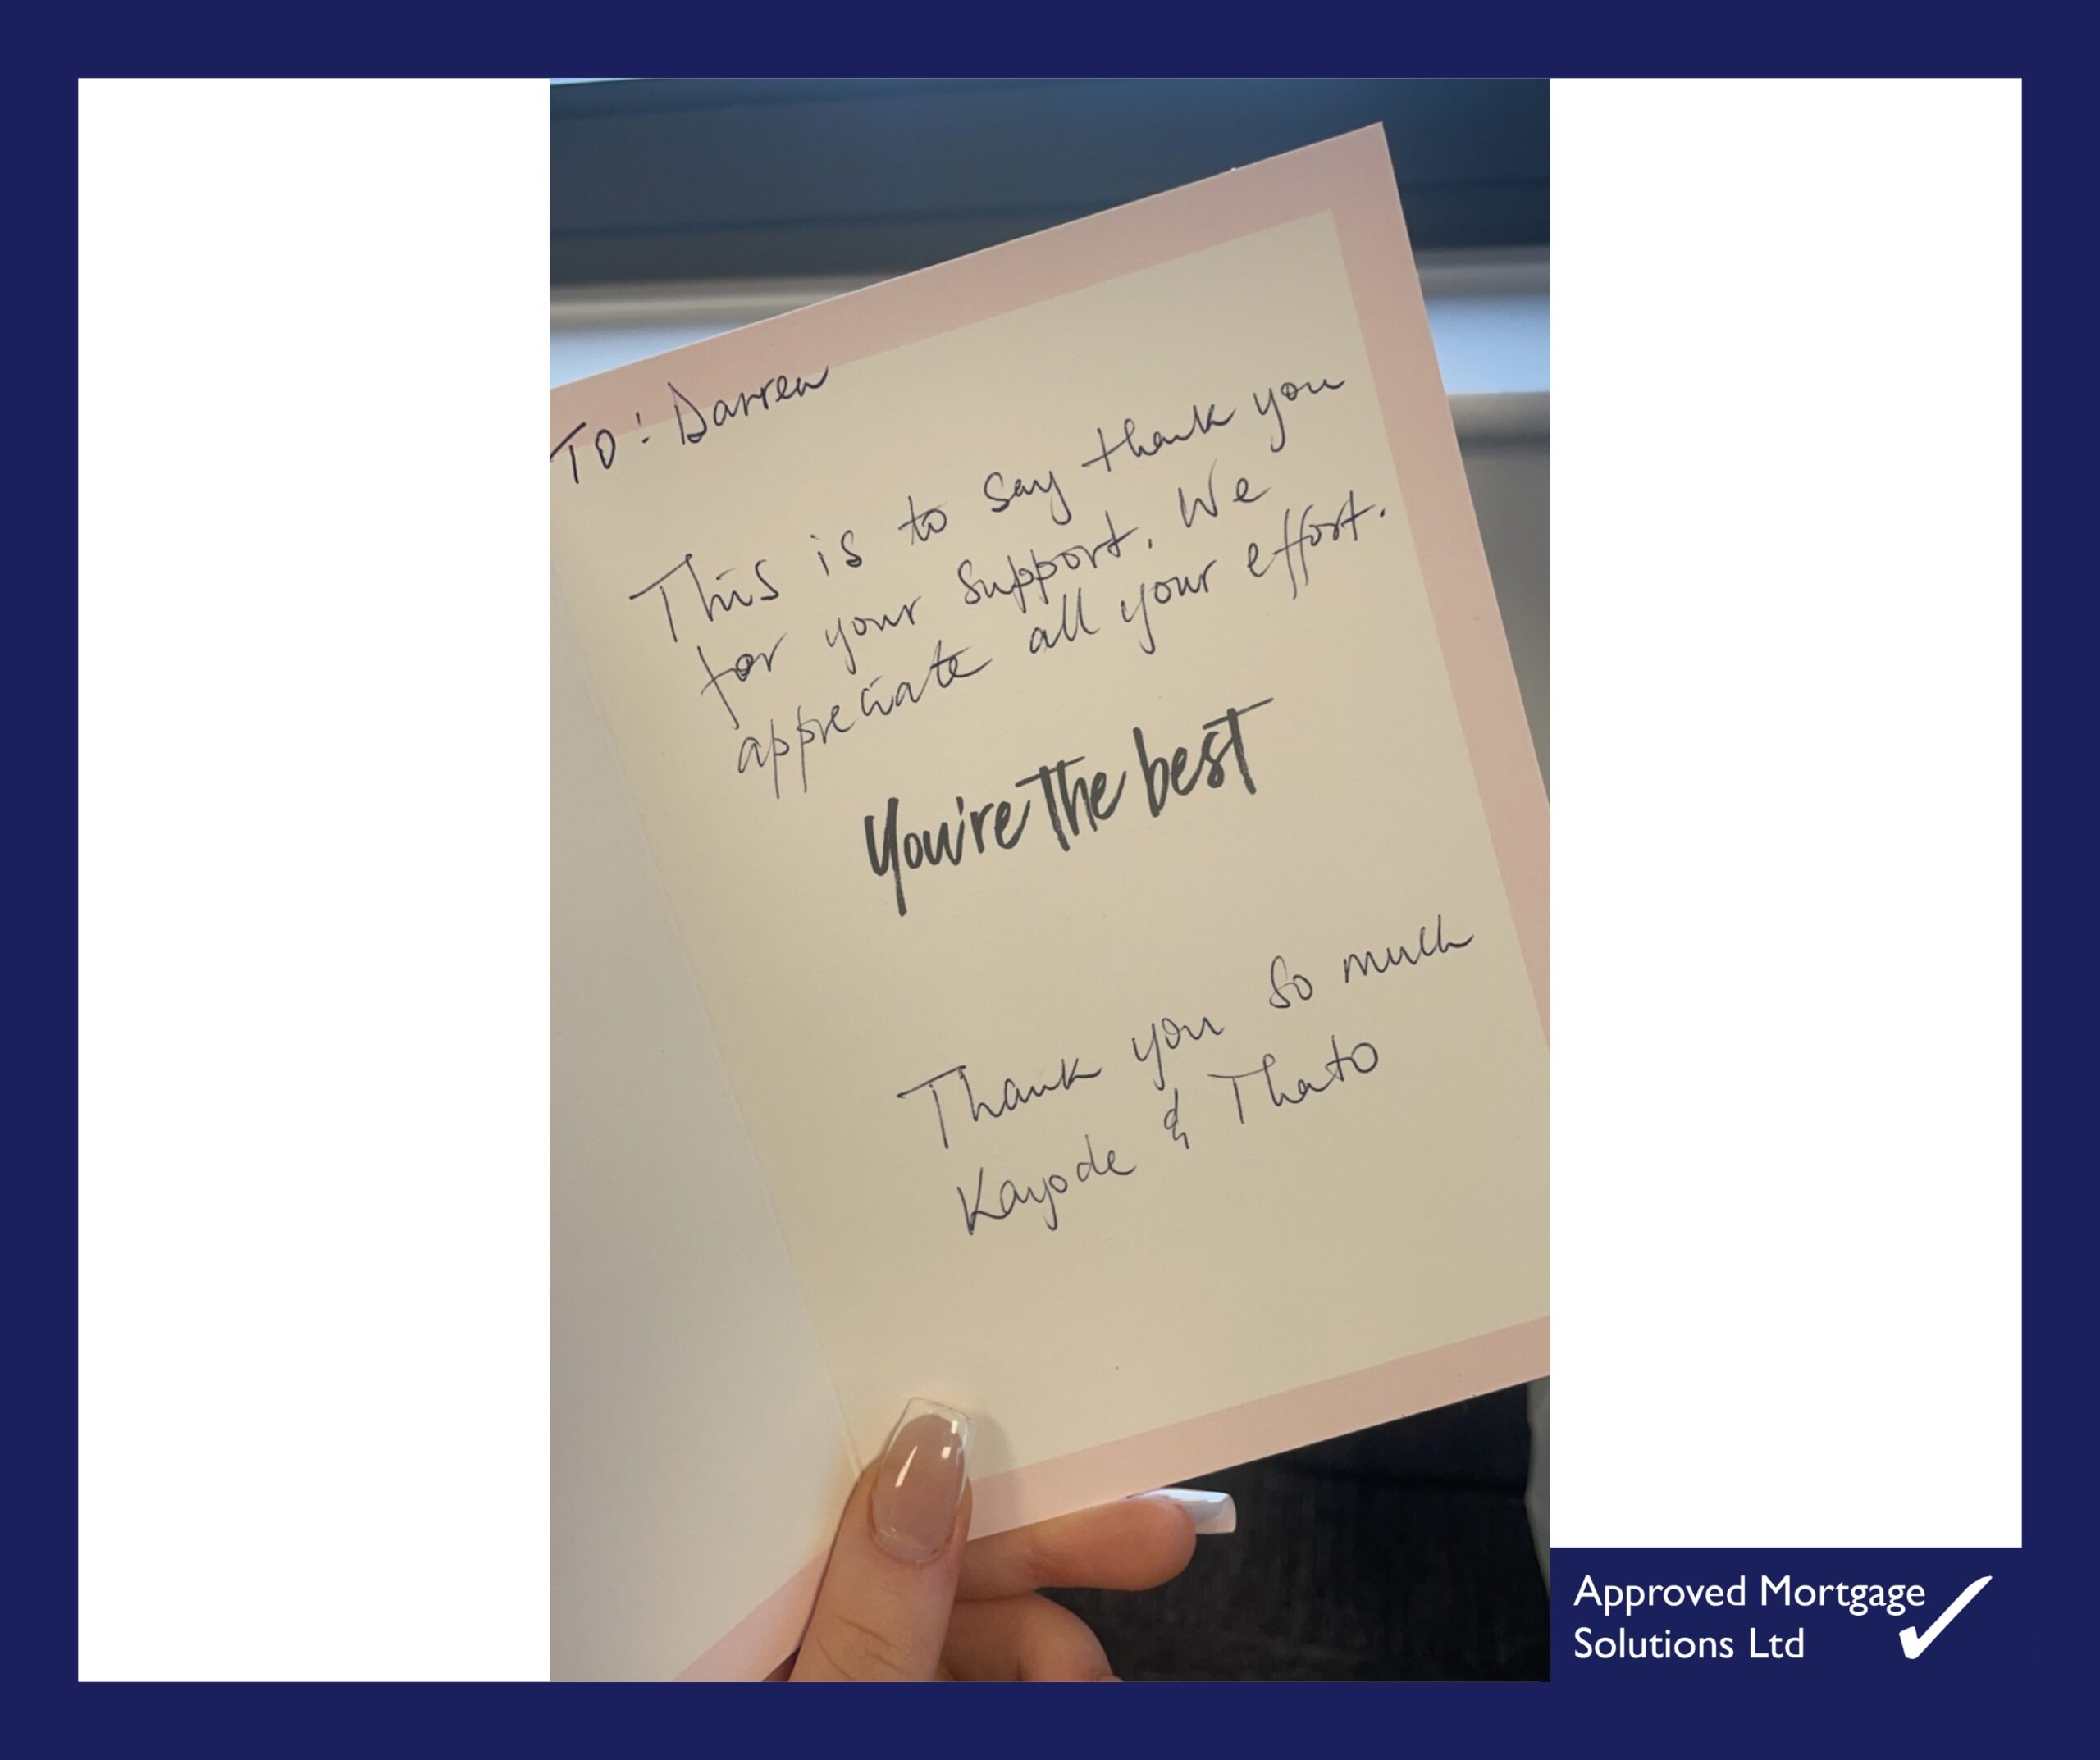 TO: Darren
This is to say thank you
for your support. We
appreciate all your effort.
You're the best
Thank you so much
Kayode & Thato
Approved Mortgage
Solutions Ltd